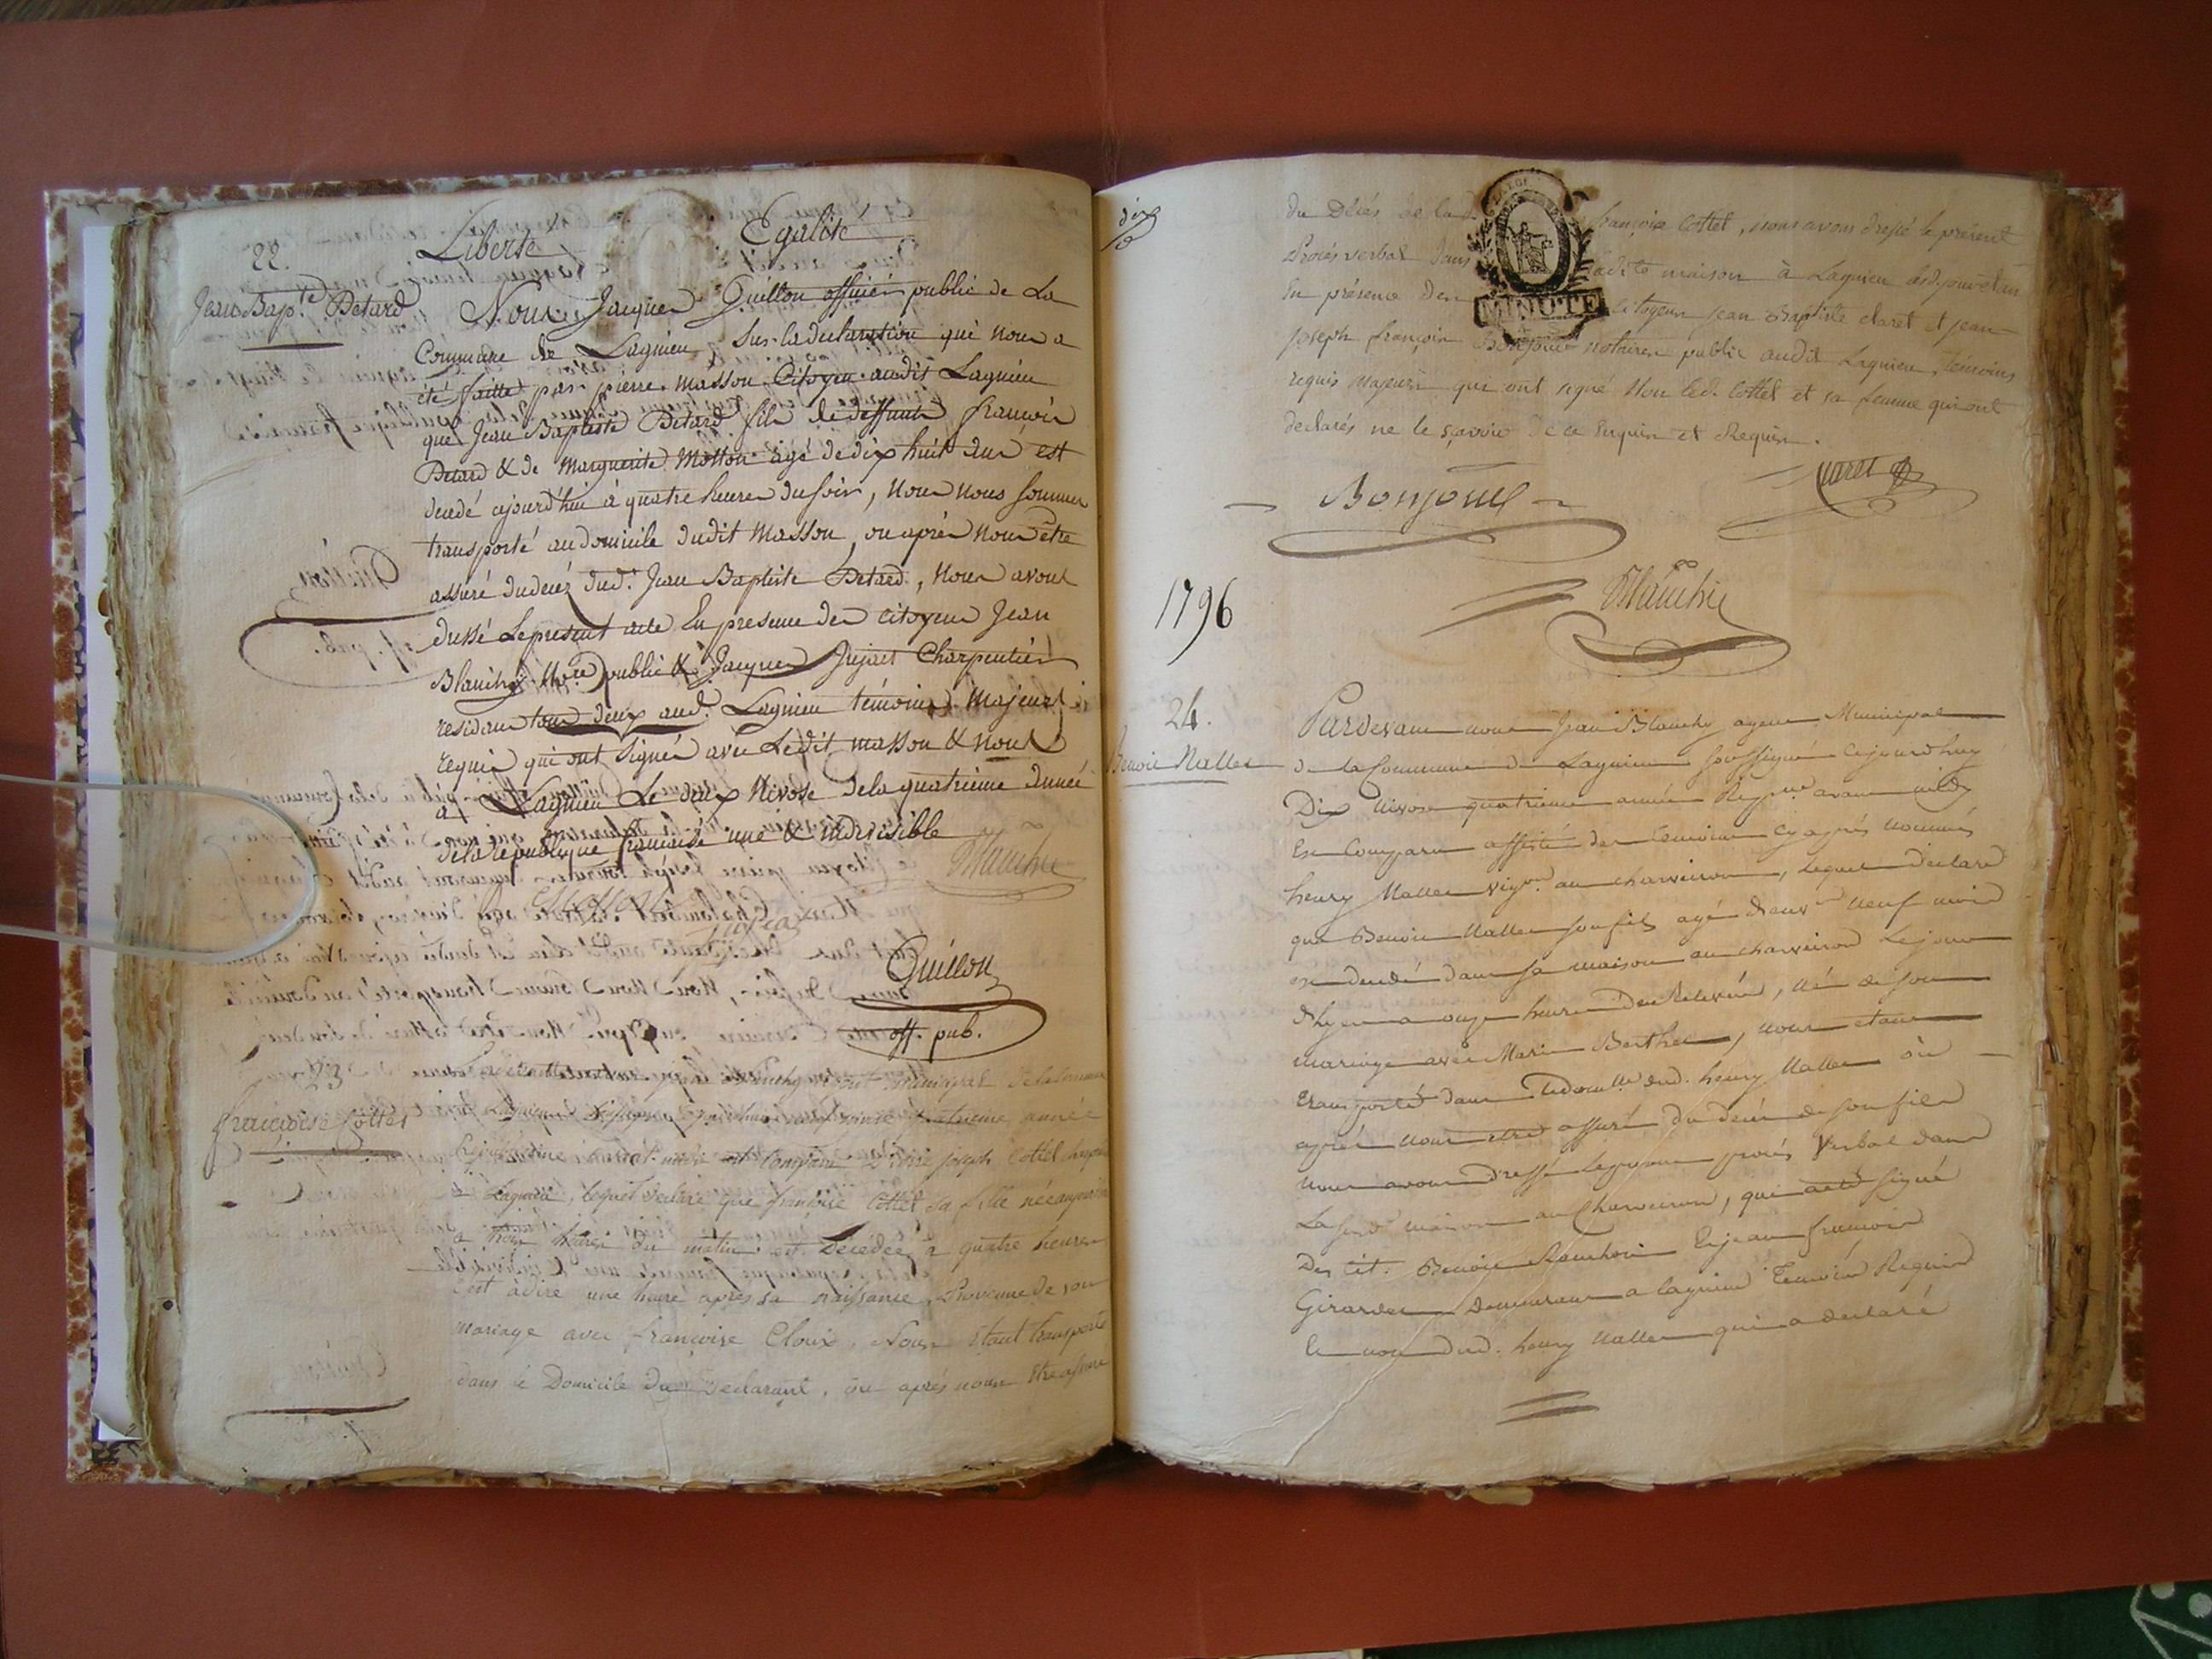 22.
Liberté Egalité
Jean Bapte Betard
Nous Jacques Guillon officier public de La
Commune de Lagnieu, Sur la declaration qui nous a
été faitte par pierre masson Citoyen audit Lagnieu
que Jean Baptiste Betard fils de deffunts francois
Betard & de Marguerite Motton agé de dix huit ans est
decedé ajourd'hui à quatre heures du soir, Nous nous sommes
transporté au domicile dudit Masson, ou après Nous être
assuré du decéz dud. Jean Baptiste Betard, Nous avons
dressé Le present acte En presence des citoyens Jean
Blanchy Nore public & Jacques Jujat Charpentier
residans tous deux aud. Lagnieu témoins Majeurs
requis qui ont signés avec Ledit masson & nous
à Lagnieu Le deux Nivose de la quatrieme année
de la republique francaise une & indivisible
Masson Blanchy
Jujat
Guillon
off. pub.
23
françoise Cottet
municipal de la commune
de Lagnieu quatrieme année
avant midi est comparu Pierre joseph Cottet
à Lagnieu, lequel declare que françoise Cottet sa fille née
a trois heures du matin est Décédée à quatre heures
C'est à dire une heure après sa naissance, Provenue de son
mariage avec françoise Cloux. Nous étant transporté
dans le Domicile du declarant, ou après nous être assuré
dix
du Décés de lad. françoise Cottet, nous avons dressé le présent
Procés verbal dans ladite maison à Lagnieu lesd. jour et an
En présence des Citoyens jean Baptiste claret et jean
MINUTE
joseph françois Bonjour notaires public audit Lagnieu, Témoins
requis majeurs qui ont signé Non led. Cottet et sa femme qui ont
declarés ne le sçavoir de ce Enquis et Requis.
Bonjour Claret
Blanchy
1796
24.
Benoit Mallet
Pardevant nous Jean Blanchy agent Municipal
de la Commune de Lagnieu soussigné Cejourdhuy
Dix Nivose quatrieme année Repque avant midy
Est Comparu assisté des temoins cy après nommés
henry Mallet vigon au charveiron, Lequel declare
que Benoit Mallet son fils agé d'env. neuf mois
est decedé dans sa maison au charveiron Le jour
d'hyer a onze heures, né de son
mariage avec Marie Berthet, nous etant
transporté dans dud. henry Mallet où
après nous être assuré du decés de son fils
nous avons dressé Le present procés Verbal dans
La susd. maison au Charveiron, qui a eté signé
Des cit. Benoit et jean francois
Girardet Demeurant a lagnieu Temoins Requis
Et non dud. henry Mallet qui a declaré